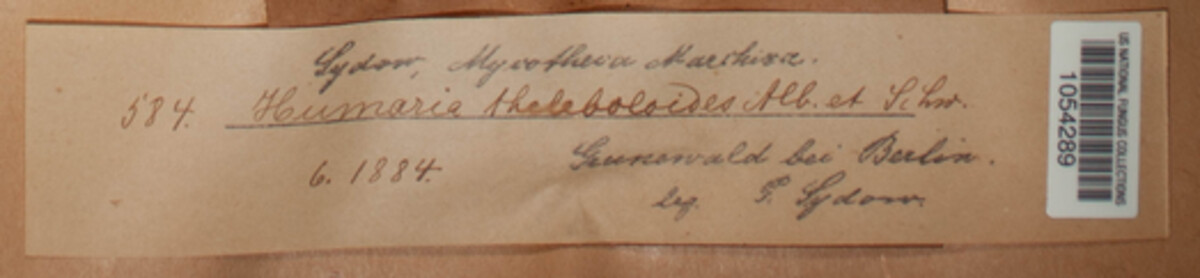 Sydow, Mycotheca Marchica.
584. Humaria theleboloides Alb. et Schw.
6. 1884. Grunewald bei Berlin.
leg. P. Sydow.
US NATIONAL FUNGUS COLLECTIONS
1054289